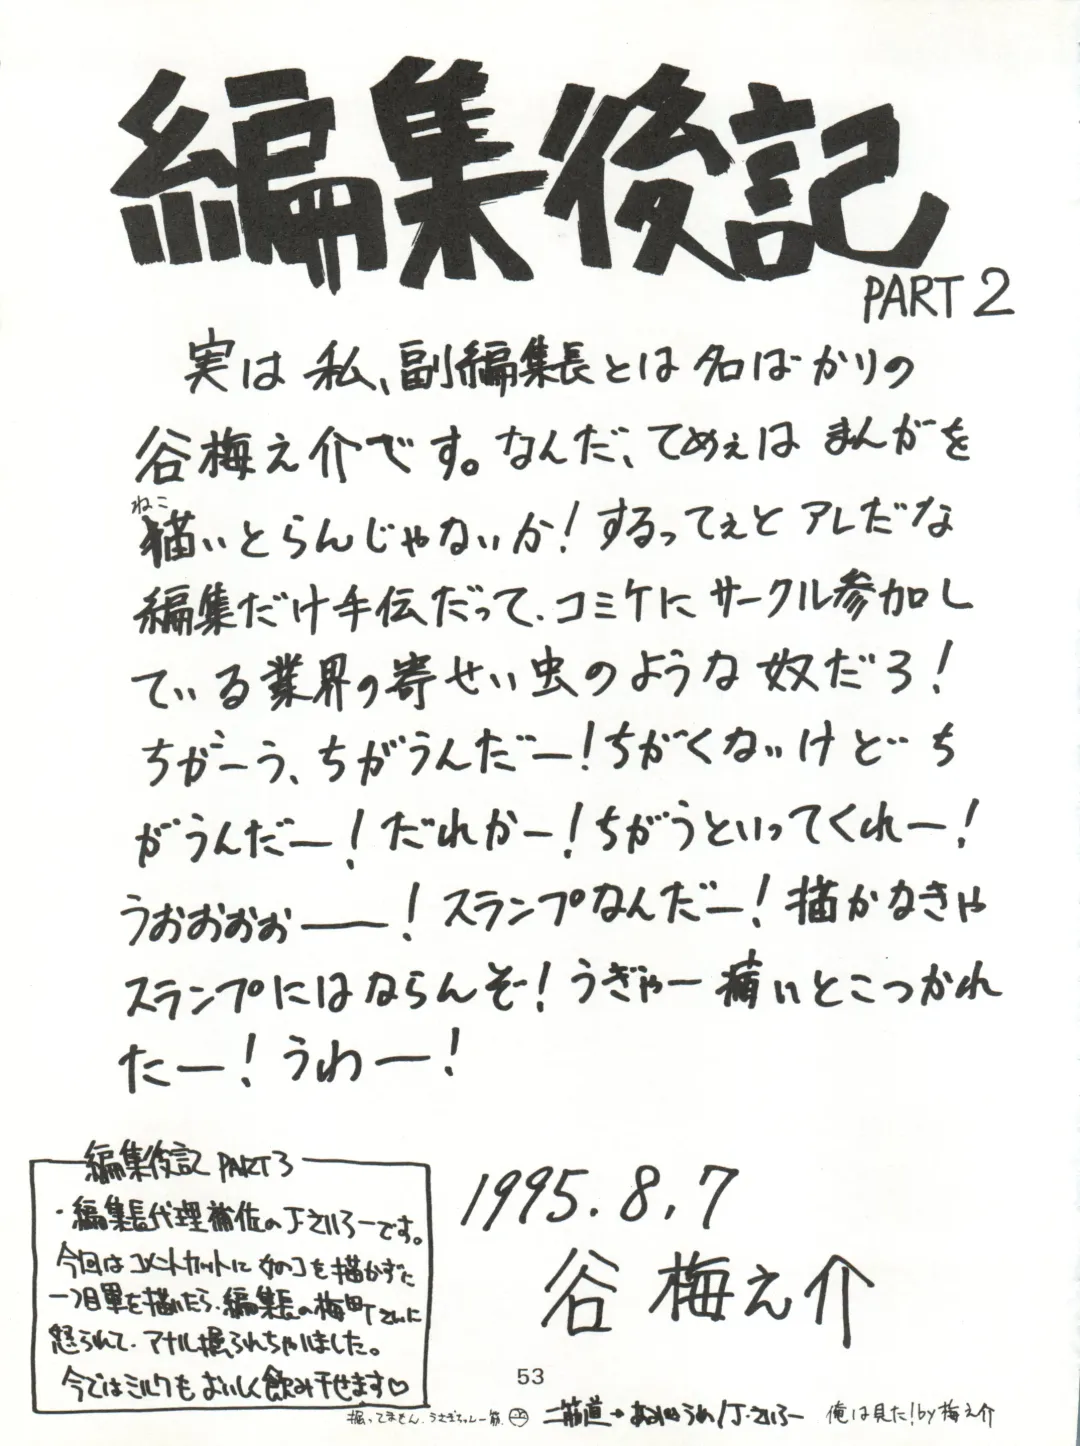 編集後記
PART 2
実は私、副編集長とは名ばかりの
谷梅之介です。なんだ、てめぇはまんがを
ねこ
描いとらんじゃないか!するってぇとアレだな
編集だけ手伝だって、コミケにサークル参加し
ている業界の寄せい虫のような奴だろ!
ちがーう、ちがうんだー!ちがくないけどち
がうんだー!だれかー!ちがうといってくれー!
うおおおぉ――!スランプなんだー!描かなきゃ
スランプにはならんぞ!うぎゃー痛いとこつかれ
たー!うわー!
編集後記 PART3
・編集長代理補佐のJ・さいろーです。
今回はコメントカットに女のコを描かずに
一つ目罩を描いたら、編集長の梅町さんに
怒られて、アナル掘られちゃいました。
今ではミルクもおいしく飲み干せます♡
1995.8.7
谷梅之介
53
掘ってません。うさぎちゃん一筋。
二筋道→
俺は見た!by梅之介